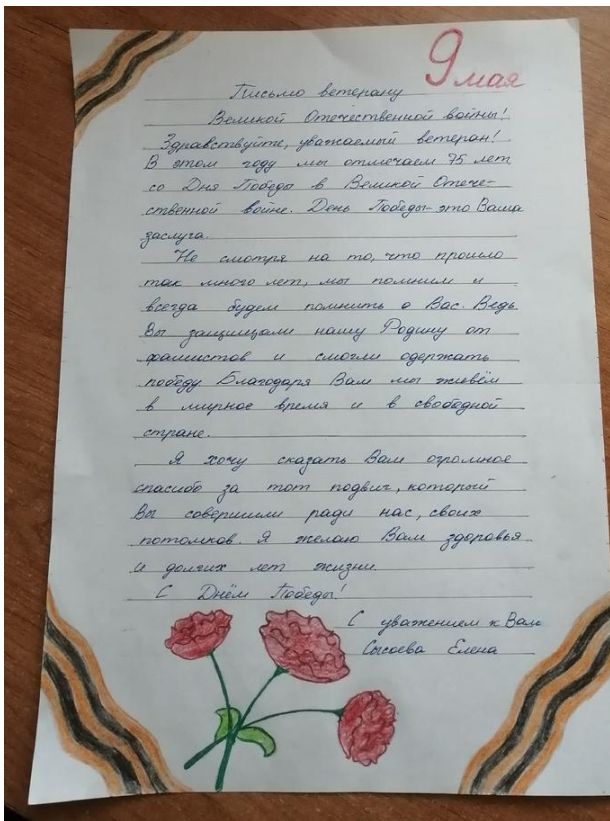 9 мая
Письмо ветерану
Великой Отечественной войны!
Здравствуйте, уважаемый ветеран!
В этом году мы отмечаем 75 лет
со Дня Победы в Великой Отече-
ственной войне. День Победы- это Ваша
заслуга.
Не смотря на то, что прошло
так много лет, мы помним и
всегда будем помнить о Вас. Ведь
Вы защищали нашу Родину от
фашистов и смогли одержать
победу. Благодаря Вам мы живём
в мирное время и в свободной
стране.
Я хочу сказать Вам огромное
спасибо за тот подвиг, который
Вы совершили ради нас, своих
потомков. Я желаю Вам здоровья
и долгих лет жизни.
С Днём Победы!
С уважением к Вам
Сысоева Елена